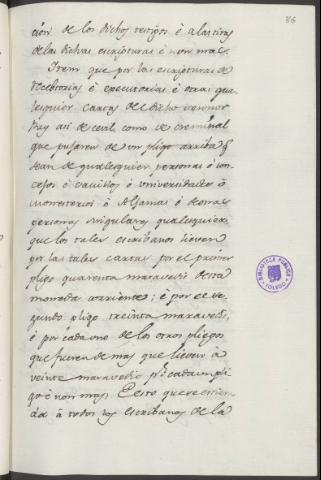 86
cion de los dichos testigos è a las tiras
de las dichas escripturas è non mas.
Item que por las escripturas de
rec è executorias è otras qua
lesquier cartas de dicho Señor
Rey asi de cevil como de creminal
que pasaren de un pligo arriba q̃
sean de qualesquier personas ò con
cejos ò cavildos ò universidades ò
monesterios ò Aljamas ò de otras
personas singulares qualesquier
que los tales escribanos lieven
por las tales cartas por el primer
pligo quarenta maravedis desta
moneda corriente; è por el se-
gundo pligo treinta maravedis,
è por cada uno de los otros pliegos
que fueren de mas que lieven à
veinte maravedis por cada un pli
go è non mas. E esto que se entien
da à todos los escribanos de la
BIBLIOTECA PUBLICA
TOLEDO